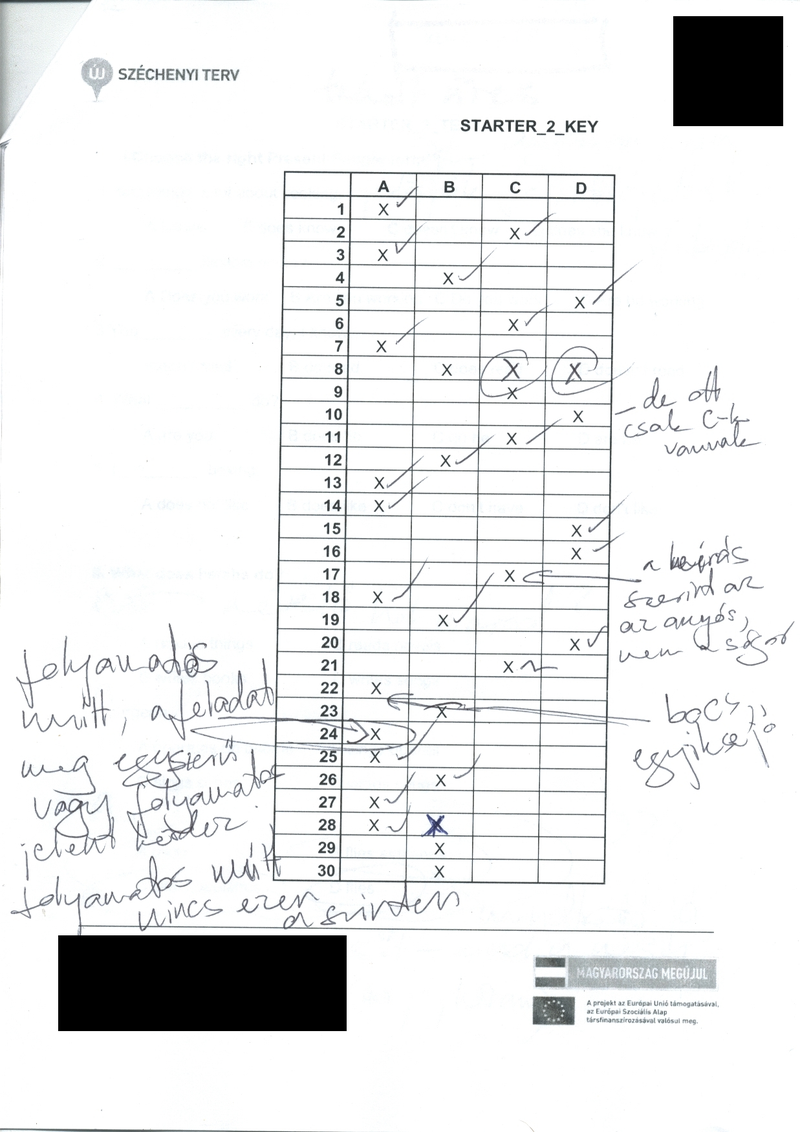 ÚJ SZÉCHENYI TERV
STARTER_2_KEY
A B C D
1 X
2 X
3 X
4 X
5 X
6 X
7 X
8 X X X
9 X
10 X
11 X
12 X
13 X
14 X
15 X
16 X
17 X
18 X
19 X
20 X
21 X
22 X
23 X
24 X
25 X
26 X
27 X
28 X X
29 X
30 X
– de ott
csak C-k
vannak
a leírás
szerint az
az anyós,
nem a sógor
bocs,
egyik se jó
folyamatos
múlt, a feladat
meg egyszerű
vagy folyamatos
jelent kérdez.
folyamatos múlt
nincs ezen
a szinten
MAGYARORSZÁG MEGÚJUL
A projekt az Európai Unió támogatásával,
az Európai Szociális Alap
társfinanszírozásával valósul meg.